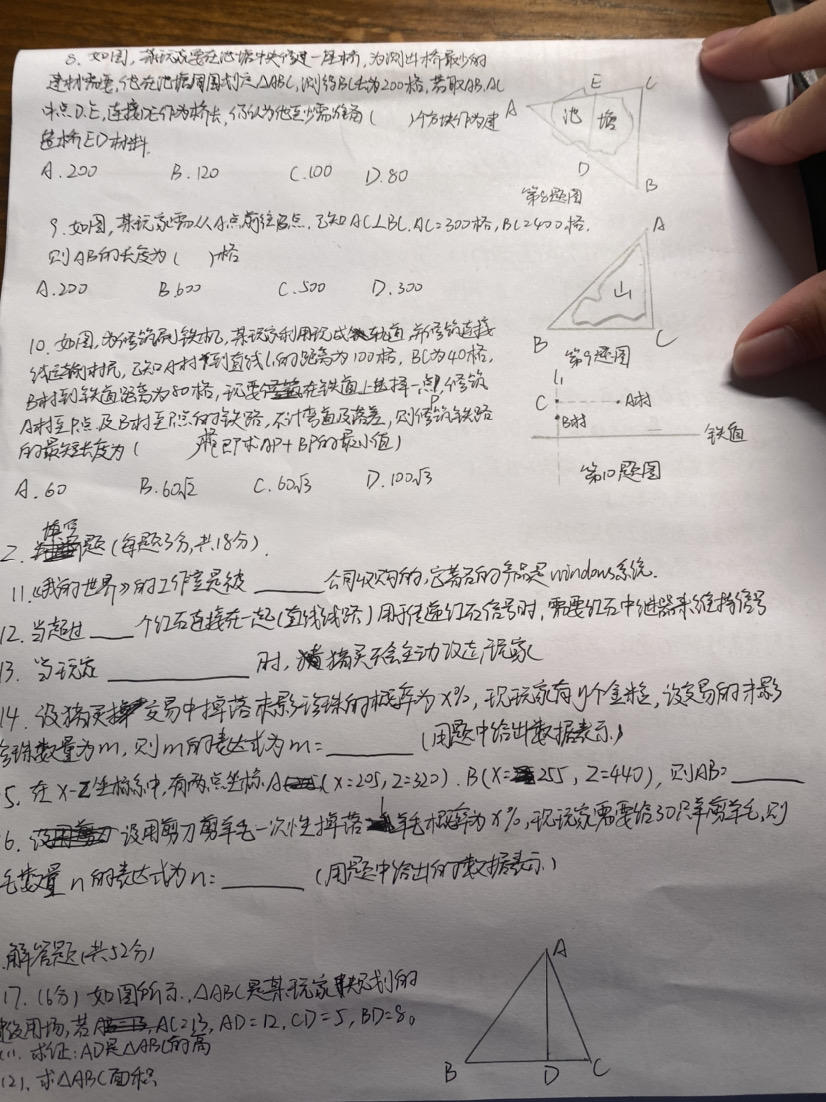 8. 如图,某玩家要在池塘中央修建一座桥,为测出桥最少的
建材需要,他在池塘周围划定△ABC,测得BC长为200格,若取AB,AC
中点D.E,连接DE作为桥长,你认为他至少需准备( )个方块作为建
造桥ED材料.
A.200 B.120 C.100 D.80
A E C
池塘
D B
第8题图
9.如图,某玩家需从A点前往B点.已知AC⊥BC.AC=300格,BC=400格.
则AB的长度为( )格
A.200 B.600 C.500 D.300
A
山
B C
第9题图
10.如图,为修筑刷铁机,某玩家利用现成轨道,并修筑直接
线运输村民,已知A村到直线l₁的距离为100格,BC为40格,
B村到铁道距离为80格,现要在铁道上选择一点P,修筑
A村至P点及B村至P点的铁路,不计弯道及落差,则修筑铁路
的最短长度为( )格(即求AP+BP的最小值)
A.60 B.60√2 C.60√3 D.100√3
l₁
C A村
B村
铁道
第10题图
2.填空题(每题3分,共18分).
11.《我的世界》的工作室是被____公司收购的,它著名的产品是windows系统.
12.当超过____个红石连接在一起(直线线路)用于传递红石信号时,需要红石中继器来维持信号
13.当玩家________时,猪灵不会主动攻击玩家
14.设猪灵交易中掉落末影珍珠的概率为x%,现玩家有y个金粒,设交易的末影
珍珠数量为m,则m的表达式为m=______(用题中给出数据表示.)
5.在X-Z坐标系中,有两点坐标A(X=205,Z=320).B(X=255,Z=440),则AB=____
6.设用剪刀剪羊毛一次性掉落1羊毛概率为x%,现玩家需要给30只羊剪羊毛,则
毛数量n的表达式为n=______(用题中给出的数据表示.)
.解答题(共52分)
17.(6分)如图所示.△ABC是某玩家规划的
用场,若AC=13,AD=12,CD=5,BD=8。
(1).求证:AD是△ABC的高
(2).求△ABC面积
A
B D C